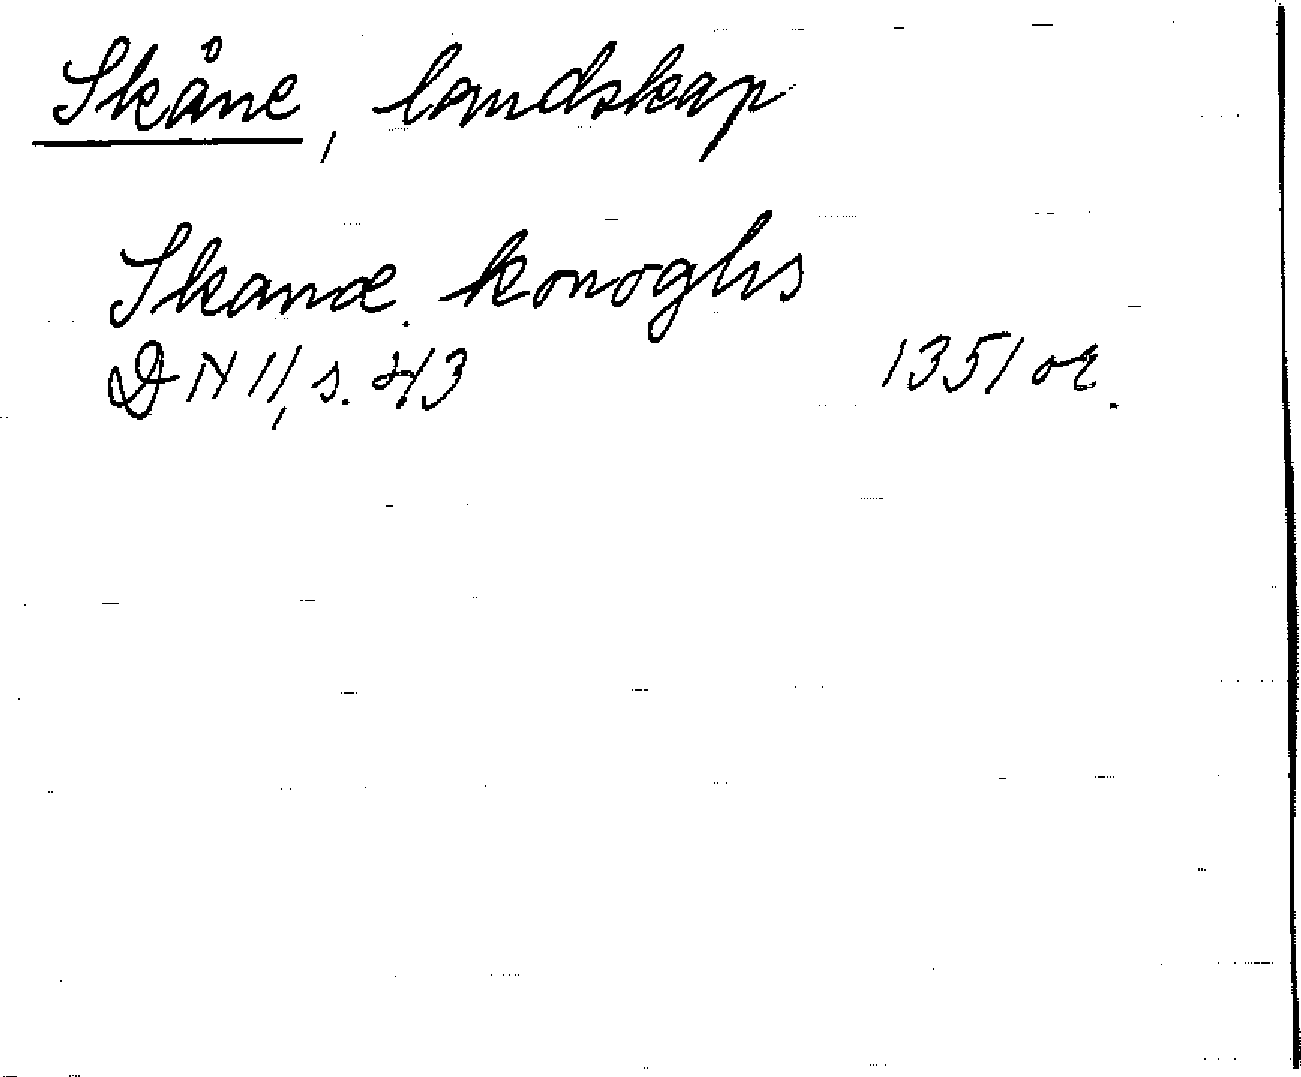 Skåne, landskap
Skanæ konoghs
DN II, s. 243 1351 or.